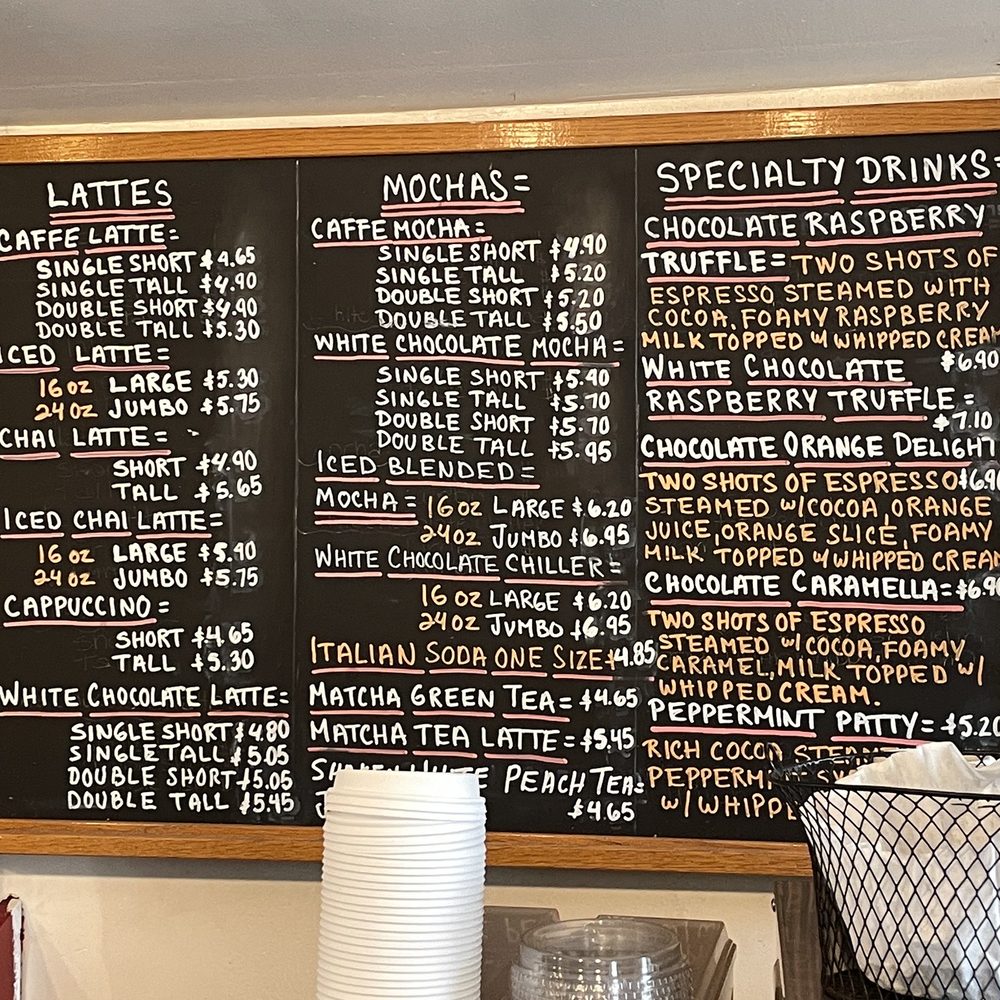 LATTES
CAFFE LATTE=
SINGLE SHORT $4.65
SINGLE TALL $4.90
DOUBLE SHORT $4.90
DOUBLE TALL $5.30
ICED LATTE=
16 OZ LARGE $5.30
24 OZ JUMBO $5.75
CHAI LATTE=
SHORT $4.90
TALL $5.65
ICED CHAI LATTE=
16 OZ LARGE $5.90
24 OZ JUMBO $5.75
CAPPUCCINO=
SHORT $4.65
TALL $5.30
WHITE CHOCOLATE LATTE=
SINGLE SHORT $4.80
SINGLE TALL $5.05
DOUBLE SHORT $5.05
DOUBLE TALL $5.45
MOCHA'S=
CAFFE MOCHA=
SINGLE SHORT $4.90
SINGLE TALL $5.20
DOUBLE SHORT $5.20
DOUBLE TALL $5.50
WHITE CHOCOLATE MOCHA=
SINGLE SHORT $5.40
SINGLE TALL $5.70
DOUBLE SHORT $5.70
DOUBLE TALL $5.95
ICED BLENDED=
MOCHA= 16 OZ LARGE $6.20
24 OZ JUMBO $6.95
WHITE CHOCOLATE CHILLER=
16 OZ LARGE $6.20
24 OZ JUMBO $6.95
ITALIAN SODA ONE SIZE $4.85
MATCHA GREEN TEA= $4.65
MATCHA TEA LATTE= $5.45
PEACH TEA=
$4.65
SPECIALTY DRINKS=
CHOCOLATE RASPBERRY
TRUFFLE= TWO SHOTS OF
ESPRESSO STEAMED WITH
COCOA, FOAMY RASPBERRY
MILK TOPPED W WHIPPED CREAM
$6.90
WHITE CHOCOLATE
RASPBERRY TRUFFLE=
$7.10
CHOCOLATE ORANGE DELIGHT
TWO SHOTS OF ESPRESSO $6.90
STEAMED W/COCOA, ORANGE
JUICE, ORANGE SLICE, FOAMY
MILK TOPPED W WHIPPED CREAM
CHOCOLATE CARAMELLA= $6.90
TWO SHOTS OF ESPRESSO
STEAMED W/ COCOA, FOAMY
CARAMEL, MILK TOPPED W/
WHIPPED CREAM.
PEPPERMINT PATTY= $5.20
RICH COCOA
W/